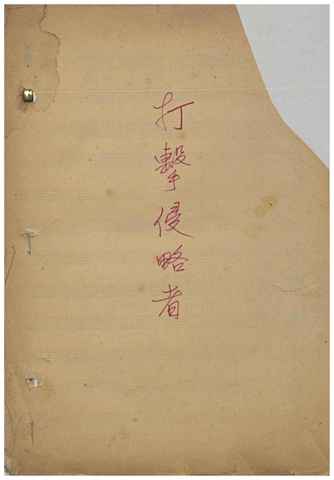 打擊侵略者